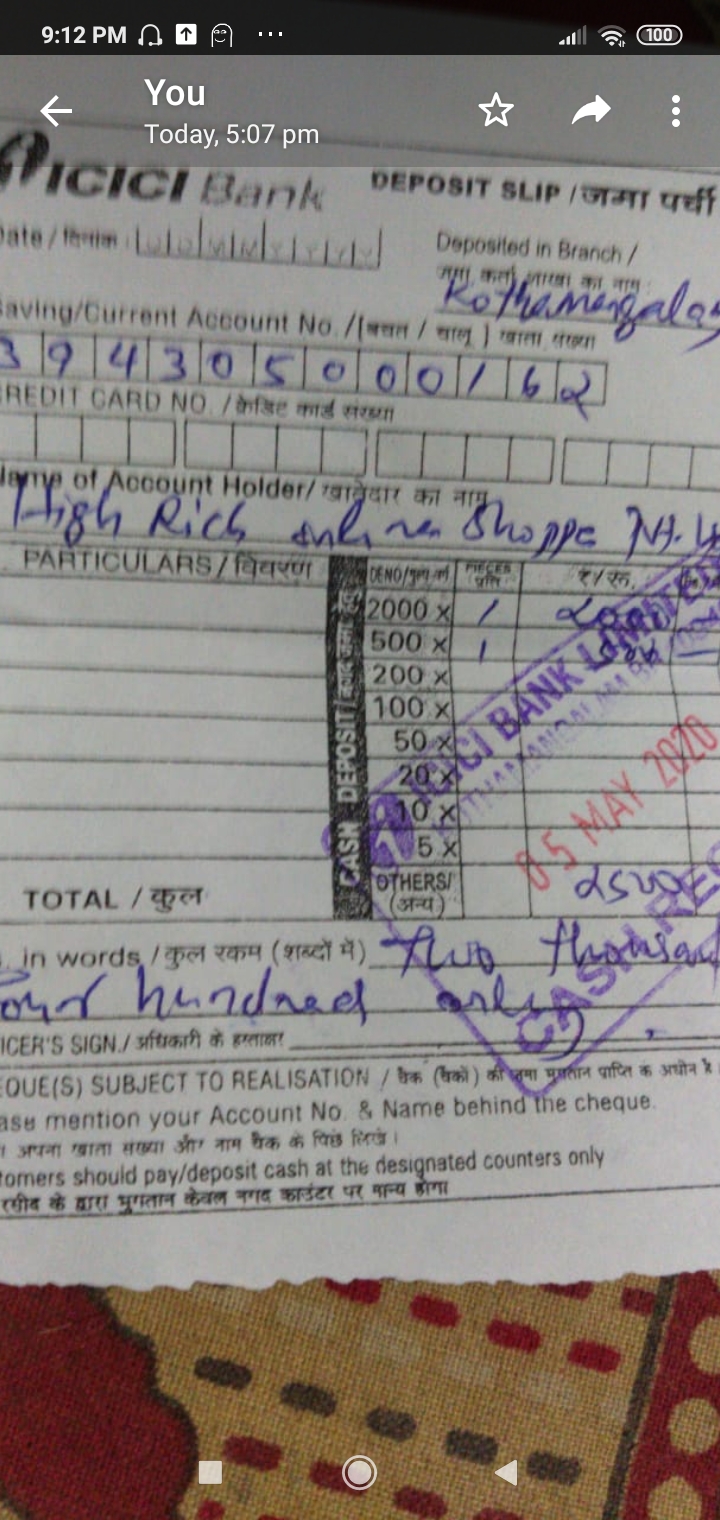 9:12 PM ... 100
You
Today, 5:07 pm
ICICI Bank DEPOSIT SLIP / जमा पर्ची
ate / दिनांक : D D M M Y Y Y Y
Deposited in Branch /
जमा कर्ता शाखा का नाम :
Kothamangala
Saving/Current Account No. / (बचत / चालू ) खाता संख्या
394305000162
REDIT CARD NO. / केडिट कार्ड संख्या
Name of Account Holder/ खातेदार का नाम
High Rich online Shoppe
PARTICULARS / विवरण
CASH DEPOSIT/
DENO/ PIECES ₹/रु.
2000 x 1 2000
500 x 1 500
200 x
100 x
50 x
20 x
10 x
5 x
OTHERS/
(अन्य)
TOTAL / कुल 2500
ICICI BANK LIMITED
05 MAY 2020
CASH REC
in words / कुल रकम (शब्दों में) two thousan
our hundred only
ICER'S SIGN./ अधिकारी के हस्ताक्षर
EQUE(S) SUBJECT TO REALISATION / चैक (चैकों) की जमा भुगतान प्राप्ति के अधीन है
ase mention your Account No. & Name behind the cheque.
अपना खाता संख्या और नाम चैक के पिछे लिखे।
tomers should pay/deposit cash at the designated counters only
रसीद के द्वारा भुगतान केवल नगद काउंटर पर मान्य होगा